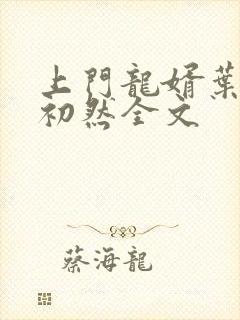 上門龍婿葉
初然全文
蔡海龍